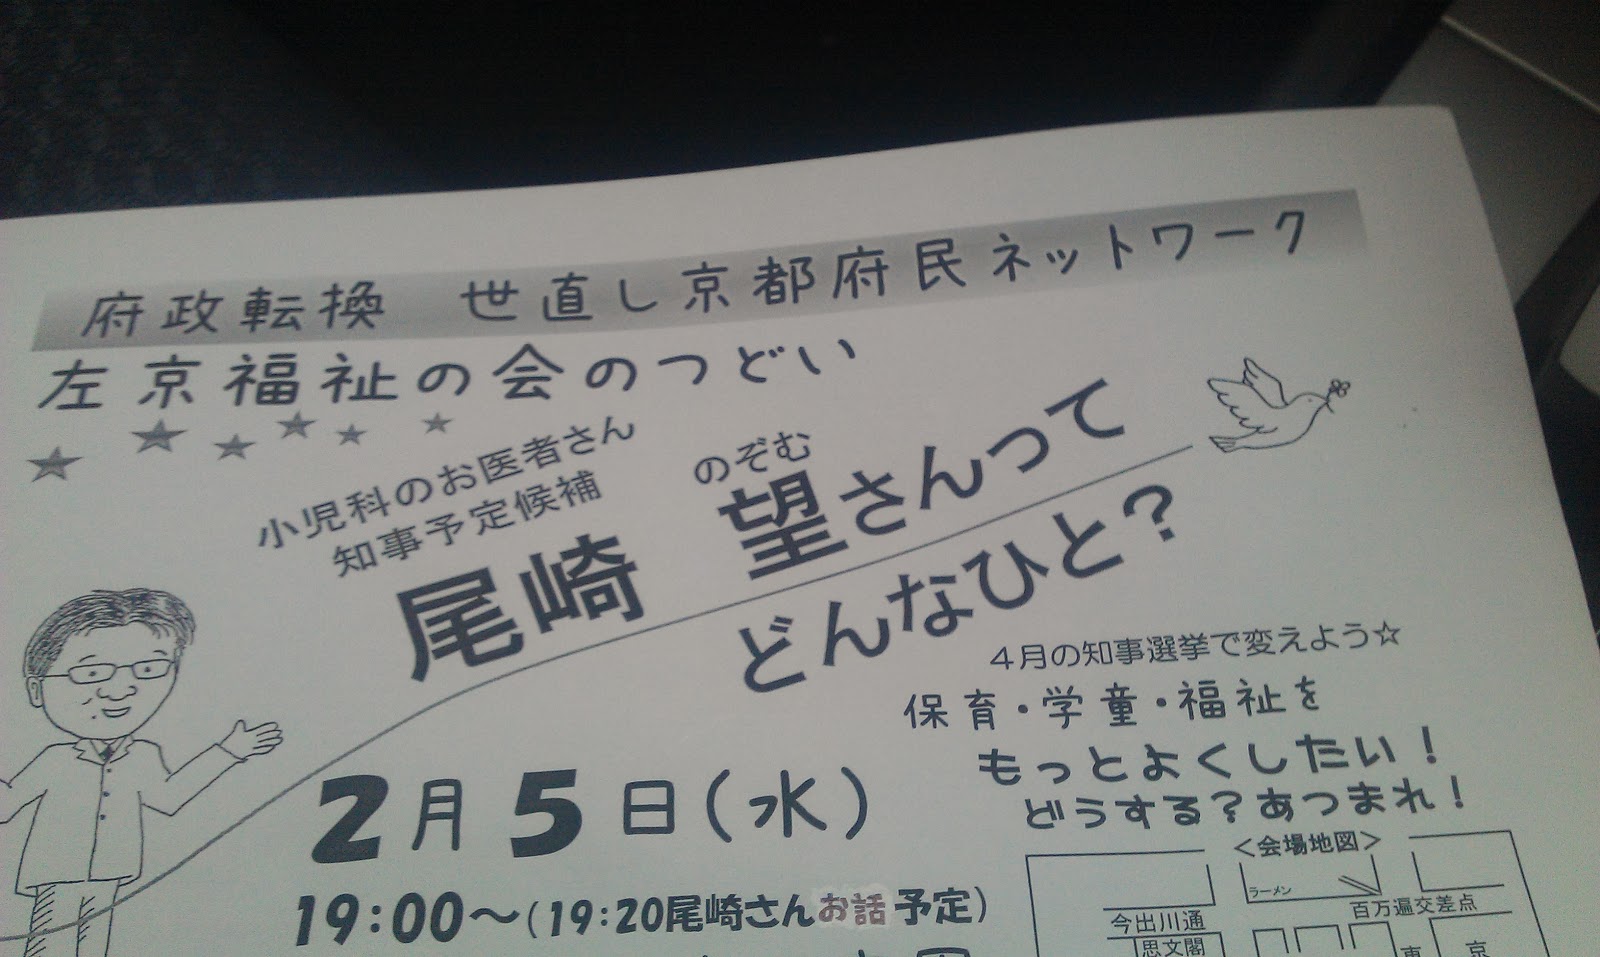 府政転換 世直し京都府民ネットワーク
左京福祉の会のつどい
小児科のお医者さん
知事予定候補
のぞむ
尾崎 望さんって
どんなひと？
4月の知事選挙で変えよう☆
保育・学童・福祉を
もっとよくしたい！
どうする？あつまれ！
2月5日(水)
19:00〜(19:20尾崎さんお話予定)
＜会場地図＞
ラーメン
百万遍交差点
今出川通
思文閣
東
京